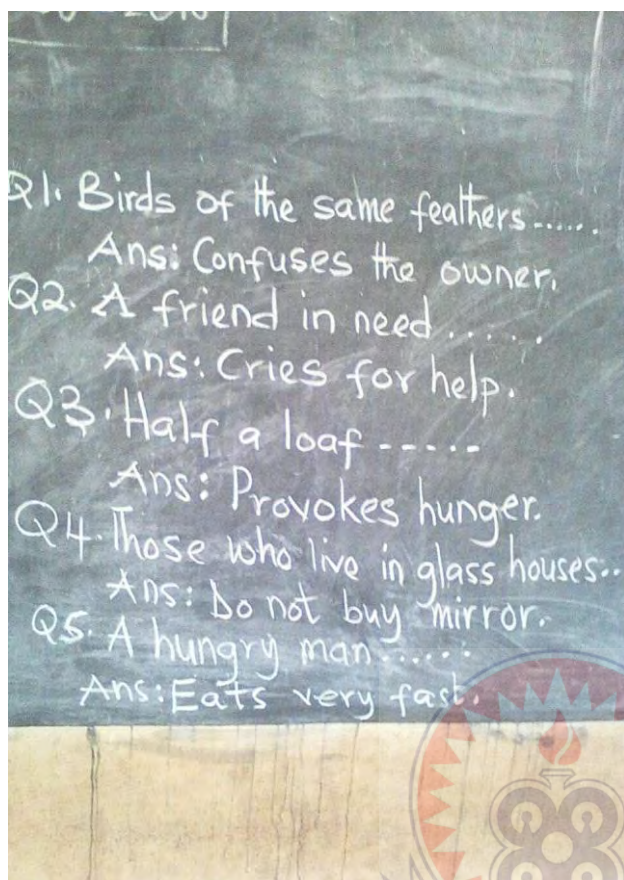 Q1. Birds of the same feathers......
Ans: Confuses the owner.
Q2. A friend in need .....
Ans: Cries for help.
Q3. Half a loaf -----
Ans: Provokes hunger.
Q4. Those who live in glass houses..
Ans: Do not buy mirror.
Q5. A hungry man......
Ans: Eats very fast.